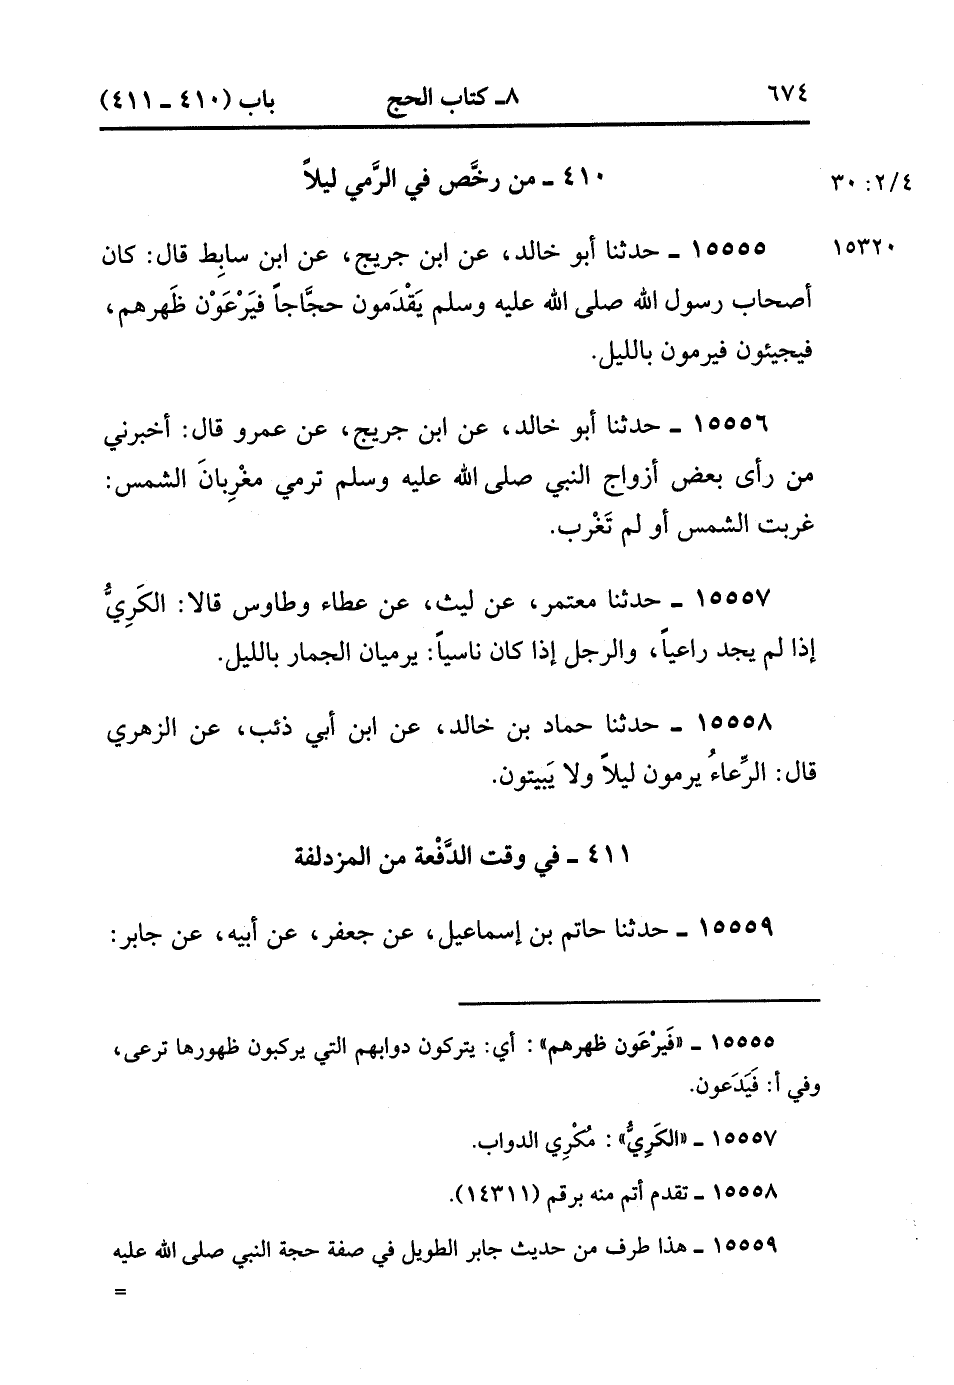 ٦٧٤ ٨ـ كتاب الحج باب (٤١٠ ـ ٤١١)
٤/٢: ٣٠ ٤١٠ ـ من رخَّص في الرَّمي ليلاً
١٥٣٢٠ ١٥٥٥٥ ـ حدثنا أبو خالد، عن ابن جريج، عن ابن سابِط قال: كان
أصحاب رسول الله صلى الله عليه وسلم يَقْدَمون حجَّاجاً فيَرْعَوْن ظَهرهم،
فيجيئون فيرمون بالليل.
١٥٥٥٦ ـ حدثنا أبو خالد، عن ابن جريج، عن عمرو قال: أخبرني
من رأى بعض أزواج النبي صلى الله عليه وسلم ترمي مغْرِبانَ الشمس:
غربت الشمس أو لم تَغْرب.
١٥٥٥٧ ـ حدثنا معتمر، عن ليث، عن عطاء وطاوس قالا: الكَرِيُّ
إذا لم يجد راعياً، والرجل إذا كان ناسياً: يرميان الجمار بالليل.
١٥٥٥٨ ـ حدثنا حماد بن خالد، عن ابن أبي ذئب، عن الزهري
قال: الرِّعاءُ يرمون ليلاً ولا يَبيتون.
٤١١ ـ في وقت الدَّفْعة من المزدلفة
١٥٥٥٩ ـ حدثنا حاتم بن إسماعيل، عن جعفر، عن أبيه، عن جابر:
١٥٥٥٥ ـ «فَيرْعَون ظهرهم»: أي: يتركون دوابهم التي يركبون ظهورها ترعى،
وفي أ: فَيَدَعون.
١٥٥٥٧ ـ «الكَرِيُّ»: مُكْرِي الدواب.
١٥٥٥٨ ـ تقدم أتم منه برقم (١٤٣١١).
١٥٥٥٩ ـ هذا طرف من حديث جابر الطويل في صفة حجة النبي صلى الله عليه
=